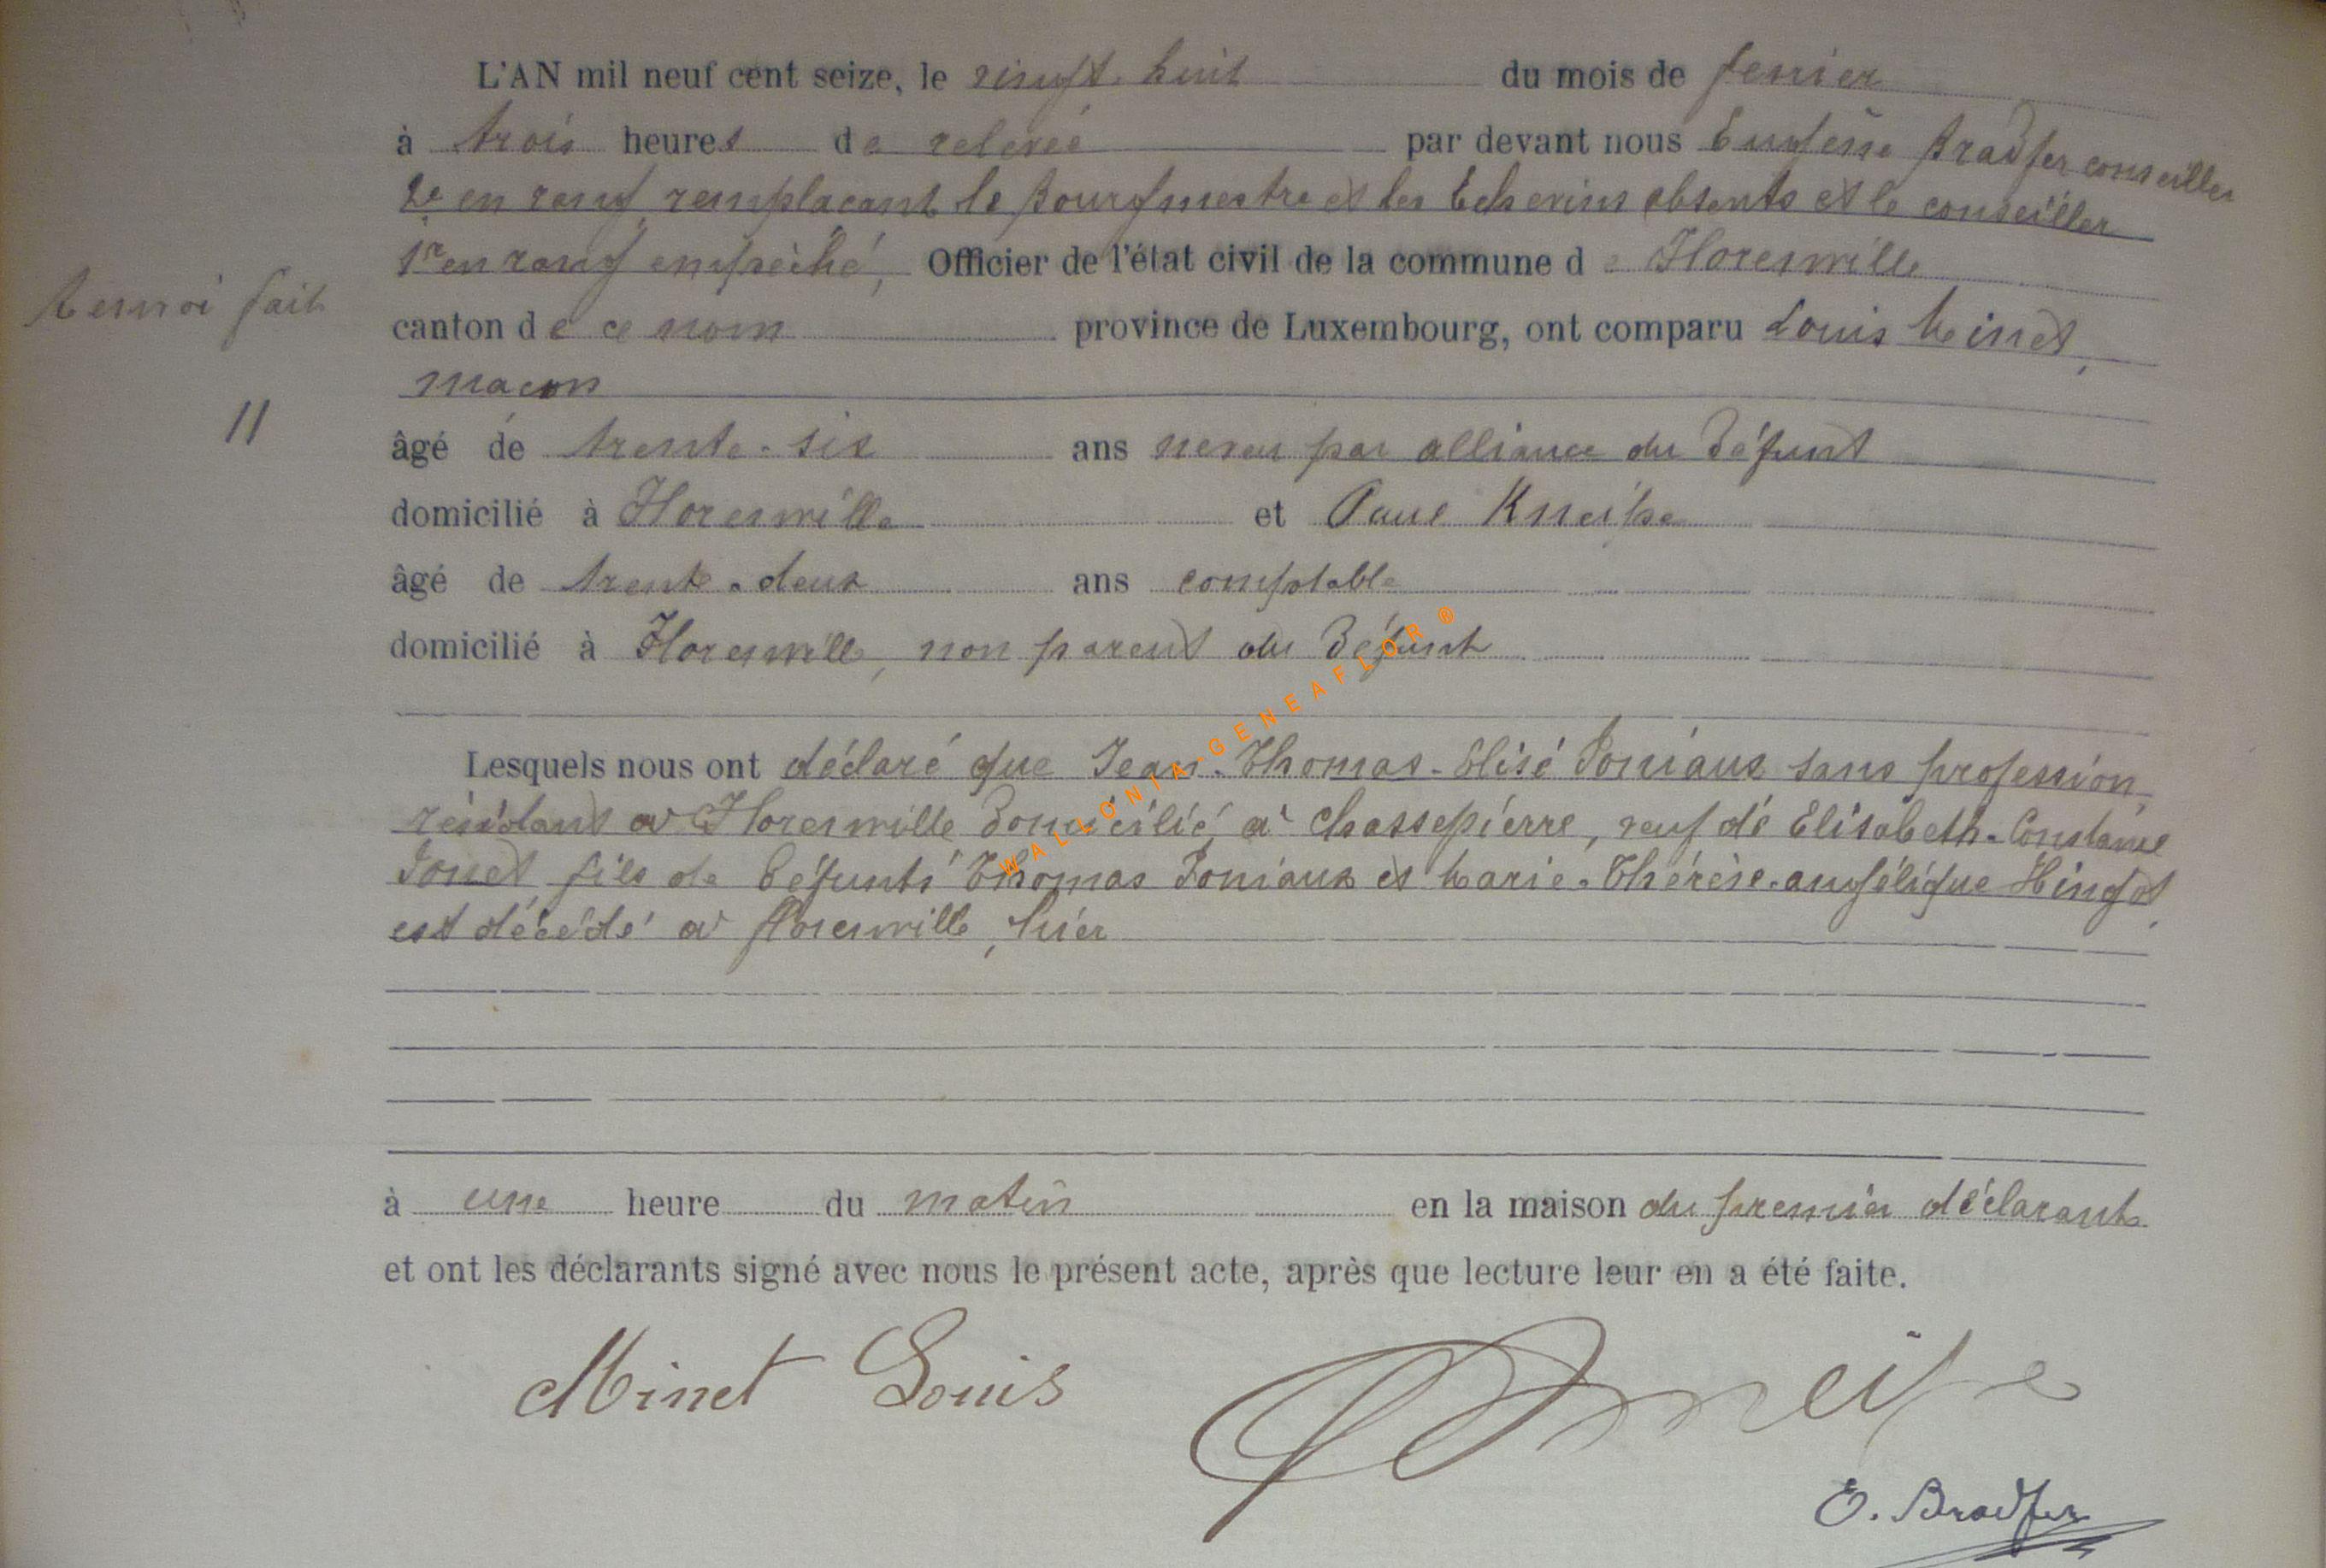 L'AN mil neuf cent seize, le vingt-huit du mois de fevrier
à trois heures de relevée par devant nous Eugène Bradfer conseiller
2e en rang remplaçant le Bourgmestre et les Echevins absents et le conseiller
1er en rang empêché, Officier de l'état civil de la commune de Florenville
Renvoi fait
canton de ce nom province de Luxembourg, ont comparu Louis Minet,
maçon
11
âgé de trente-six ans neveu par alliance du défunt
domicilié à Florenville et Paul Kneipe
âgé de trente-deux ans comptable
domicilié à Florenville, non parent du défunt
WALLONIA-GENEAFLOR ®
Lesquels nous ont déclaré que Jean-Thomas-Elisé Poniaux sans profession,
résidant à Florenville domicilié à Chassepierre, veuf de Elisabeth-Constance
Jonet, fils de défunts Thomas Poniaux et Marie-Thérèse-angélique Hingot,
est décédé à florenville, hier
à une heure du matin en la maison du premier déclarant
et ont les déclarants signé avec nous le présent acte, après que lecture leur en a été faite.
Minet Louis
Kneipe
E. Bradfer